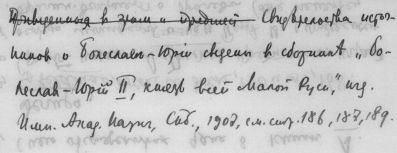 Приведенныя в этом и предшест Свидѣтельства источ-
ников о Болеславѣ-Юрiи сведены в сборникѣ „Бо-
леслав-Юрiй II, князь всей Малой Руси“, изд.
Имп. Акад. Наук, Спб., 1907, см. стр. 186, 187, 189.